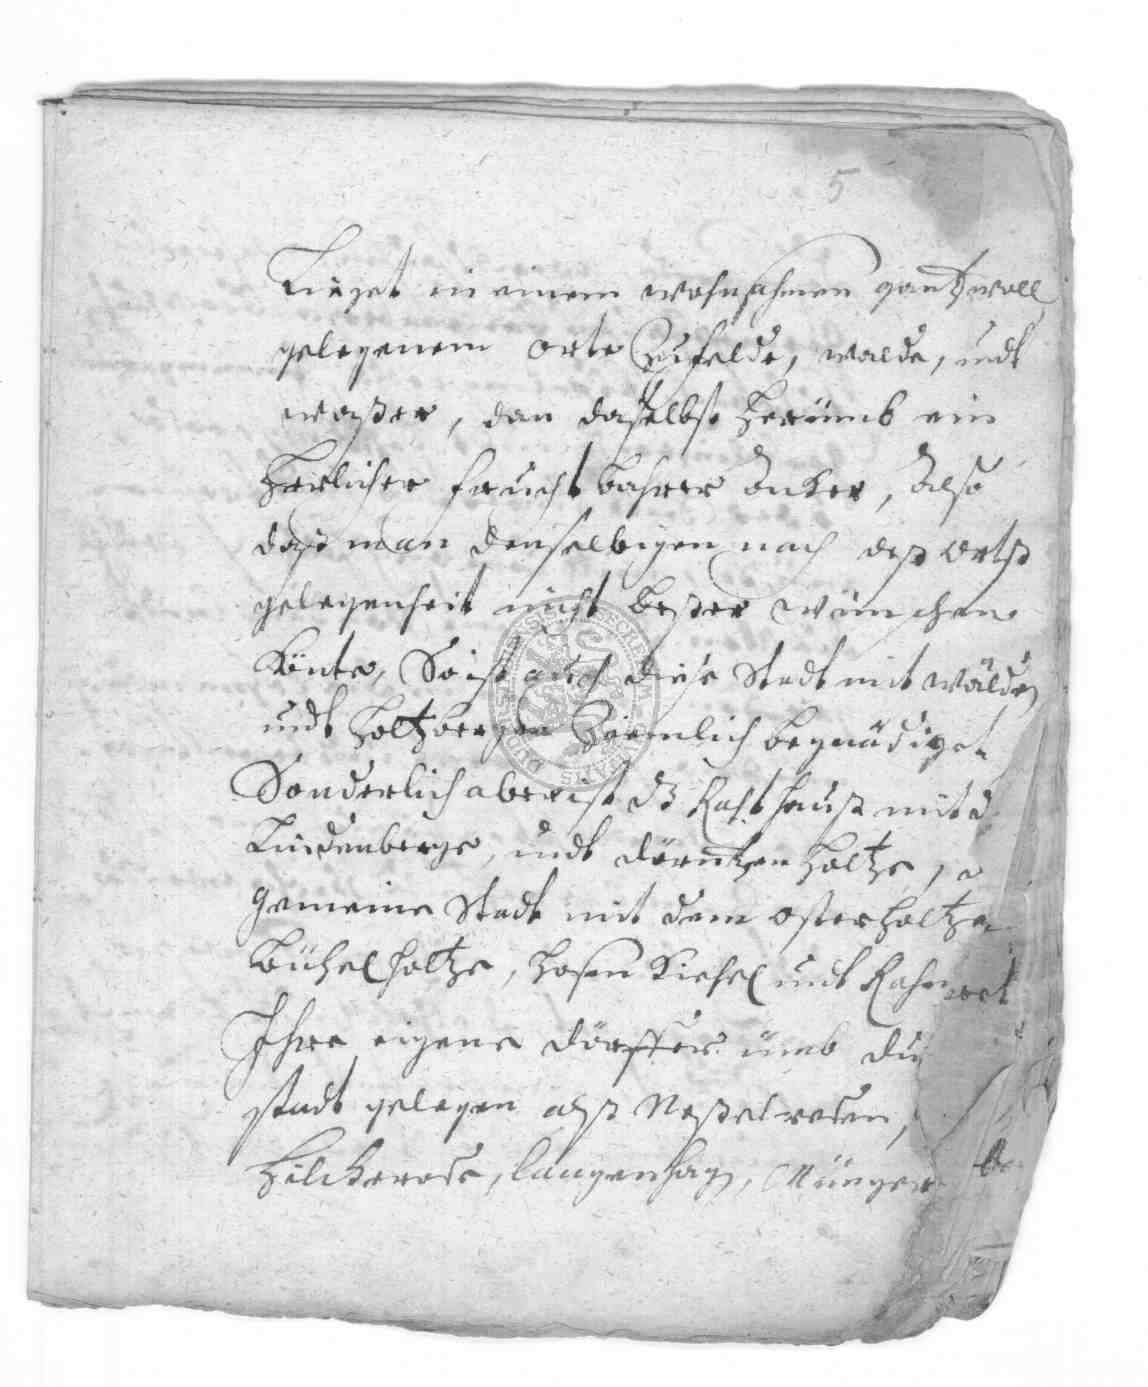 5
Lieget in einem wohnsahmen gantz woll
gelegenem orte Zu felde, walde, undt
waßer, dan daselbst herümb ein
herlicher frucht bahrer Acker, Also
daß man denselbigen nach deß Ortß
gelegenheit nicht beßer wünschen
Könte, So ist auch diese Stadt mit wälden
undt holtzbergen Ziemlich begnädiget
Sonderlich aber ist dz Raht hauß mit d
Lindenberge, undt dörntzen holtze,
gemeine Stadt mit dem osterholtze
Büchelholtze, hosen Kiesel undt Rahm
Ihre eigene dörffer ümb die
stadt gelegen alß Neßelreden,
Hilckerode, langenhagen, Münge